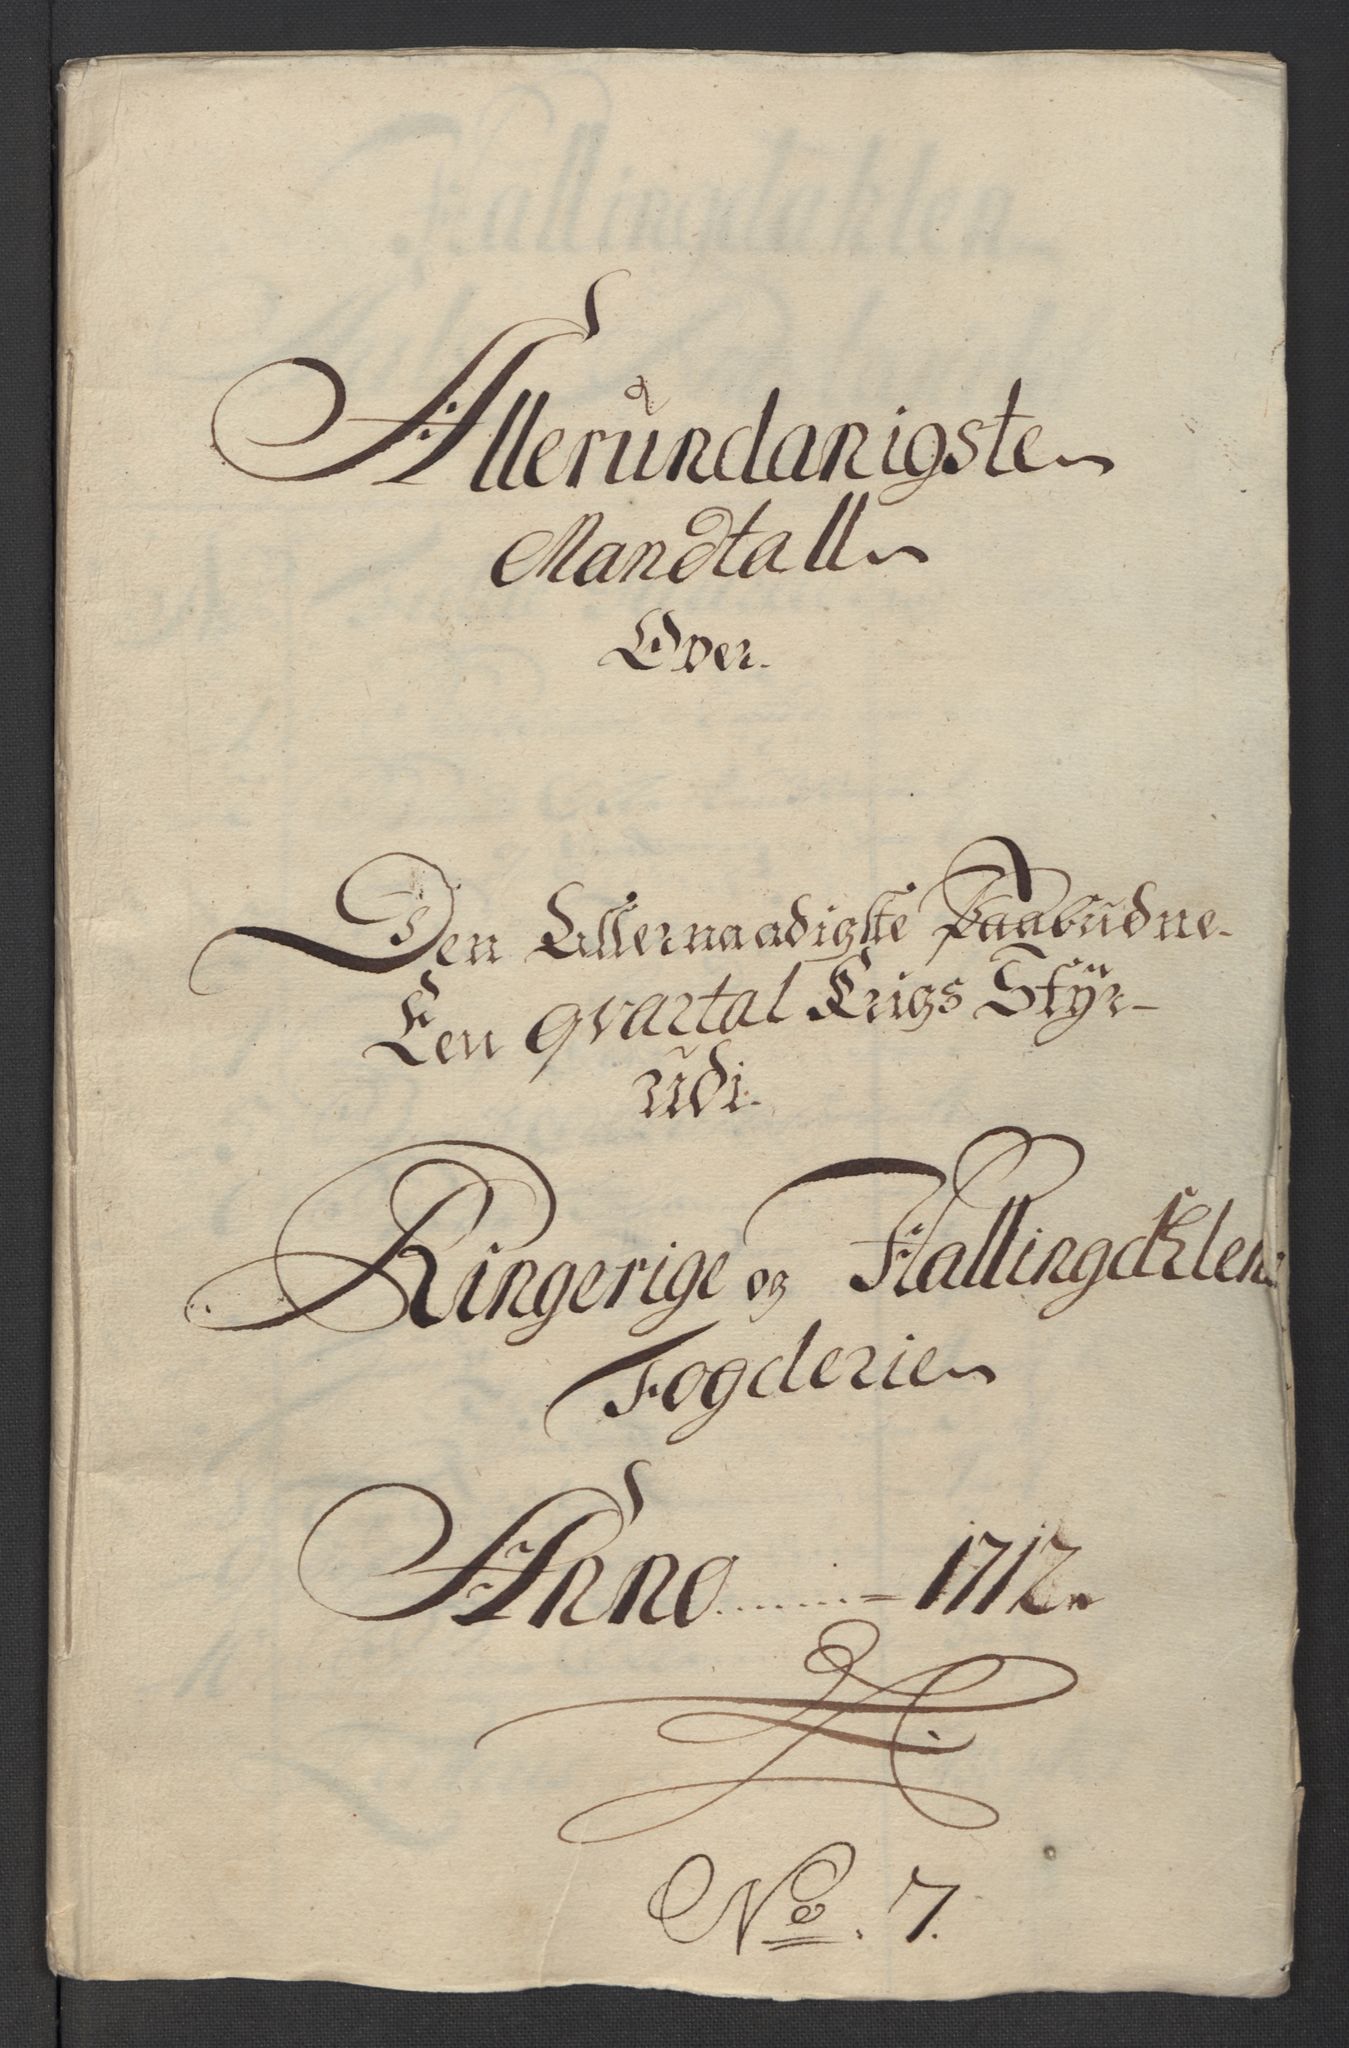 Allerundanigste
Mandtall
Over
Den Allernaadigste Paabudne
Een qvartal Krigs Styr
udi
Ringerige og Hallingdahlens
Fogderie
Anno 1712
No. 7.